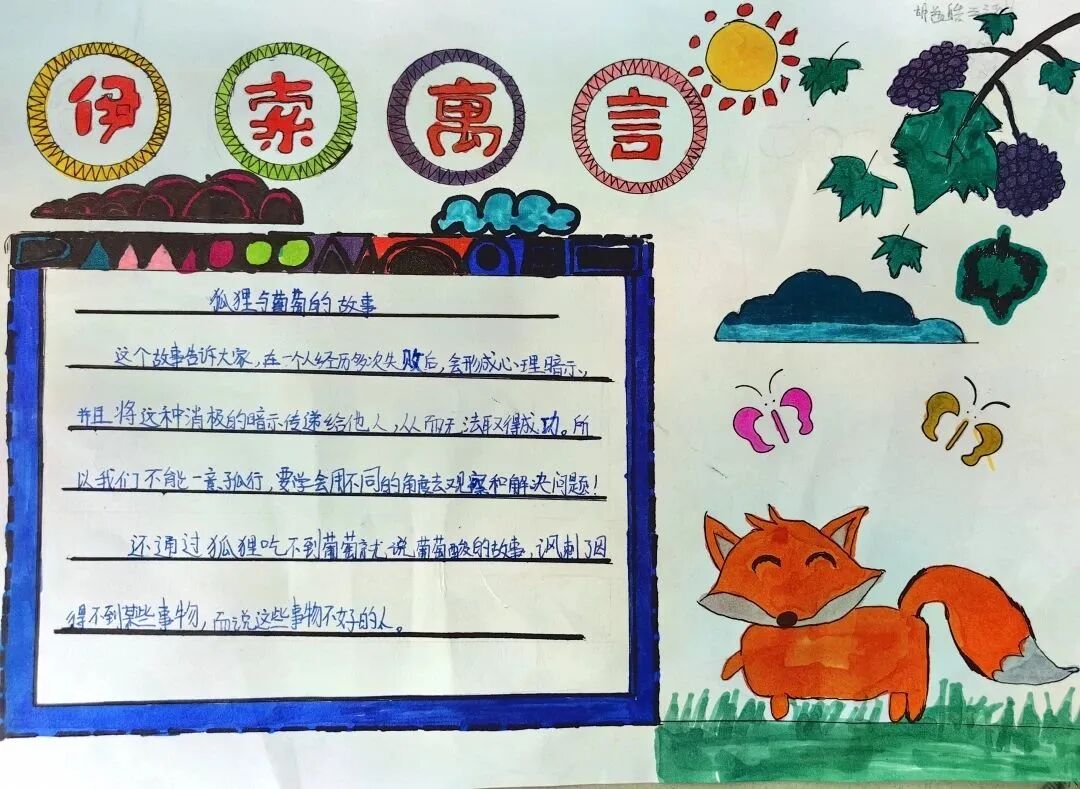 伊索寓言
狐狸与葡萄的故事
这个故事告诉大家,在一个人经历多次失败后,会形成心理暗示,
并且将这种消极的暗示传递给他人,从而无法取得成功。所
以我们不能一意孤行,要学会用不同的角度去观察和解决问题!
还通过狐狸吃不到葡萄就说葡萄酸的故事,讽刺了因
得不到某些事物,而说这些事物不好的人。